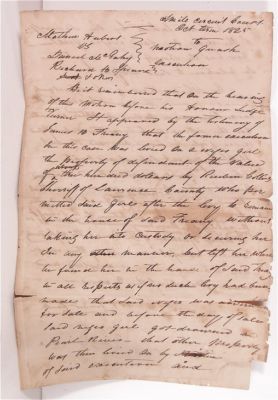 Smith circuit Court
Oct term 1825
Mathew Hubert
VS
Motion Quash
Daniel McCaskey
Execution
Richard H
Be it remembered that On the hearing
of this Motion before his Honour Judge
Turner It appeared by the testimony of
James that the former execution
In this case was levied On a negro girl
the property of defendant of the Value
of three hundred dollars by Reuben Collins
Sherriff of Lawrence County who per
mitted Said Girl after the levy to remain
in the hands of Said Treny without
taking her into Custody or Securing her
On any manner, but left her where
he found her in the hands of Said
in all respects as if no Such levy had been
made, that Said negro was
for Sale and before the day of Sale
Said negro Girl got drowned in
Pearl River — that other property
was then levied On by
of Said execution and